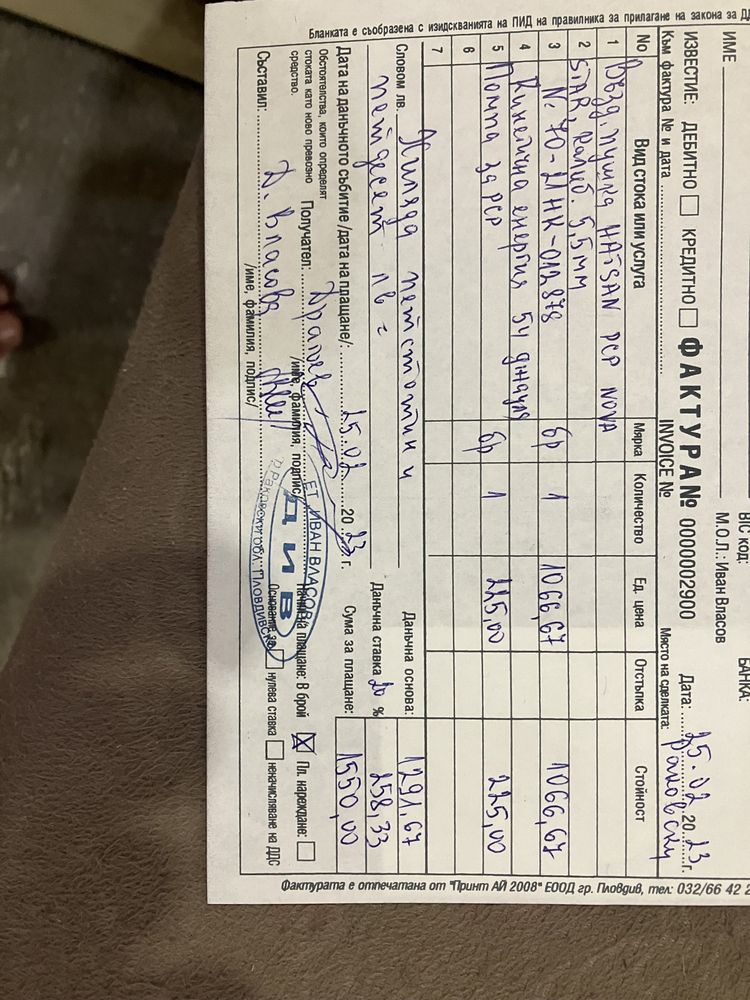 БАНКА:
BIC код:
ИМЕ
М.О.Л.: Иван Власов
ИЗВЕСТИЕ: ДЕБИТНО КРЕДИТНО ФАКТУРА № 0000002900 Дата: 25.02 2023 г.
Към фактура № и дата INVOICE № Място на сделката: Раковски
No Вид стока или услуга Мярка Количество Ед. цена Отстъпка Стойност
1 Възд. пушка HATSAN PCP NOVA
2 STAR, калиб. 5,5мм
3 № 70-21HK-012878 бр 1 1066,67 1066,67
4 Кинетична енергия 54 джаула
5 Помпа за PCP бр 1 225,00 225,00
6
7
Словом лв. Хиляда петстотин и Данъчна основа: 1291,67
петдесет лв = Данъчна ставка 20 % 258,33
Дата на данъчното събитие /дата на плащане/: 25.02 2023 г. Сума за плащане: 1550,00
Обстоятелства, които определят стоката като ново превозно средство.
Получател:
/име, фамилия, подпис/
Начин на плащане: В брой Пл. нареждане:
Съставил: Д. Власова
/име, фамилия, подпис/
Основание за нулева ставка неначисляване на ДДС
ЕТ ИВАН ВЛАСОВ
ДИВ
ГР. РАКОВСКИ ОБЛ. ПЛОВДИВСКА
Бланката е съобразена с изидскванията на ПИД на правилника за прилагане на закона за
Фактурата е отпечатана от "Принт АЙ 2008" ЕООД гр. Пловдив, тел: 032/66 42 2